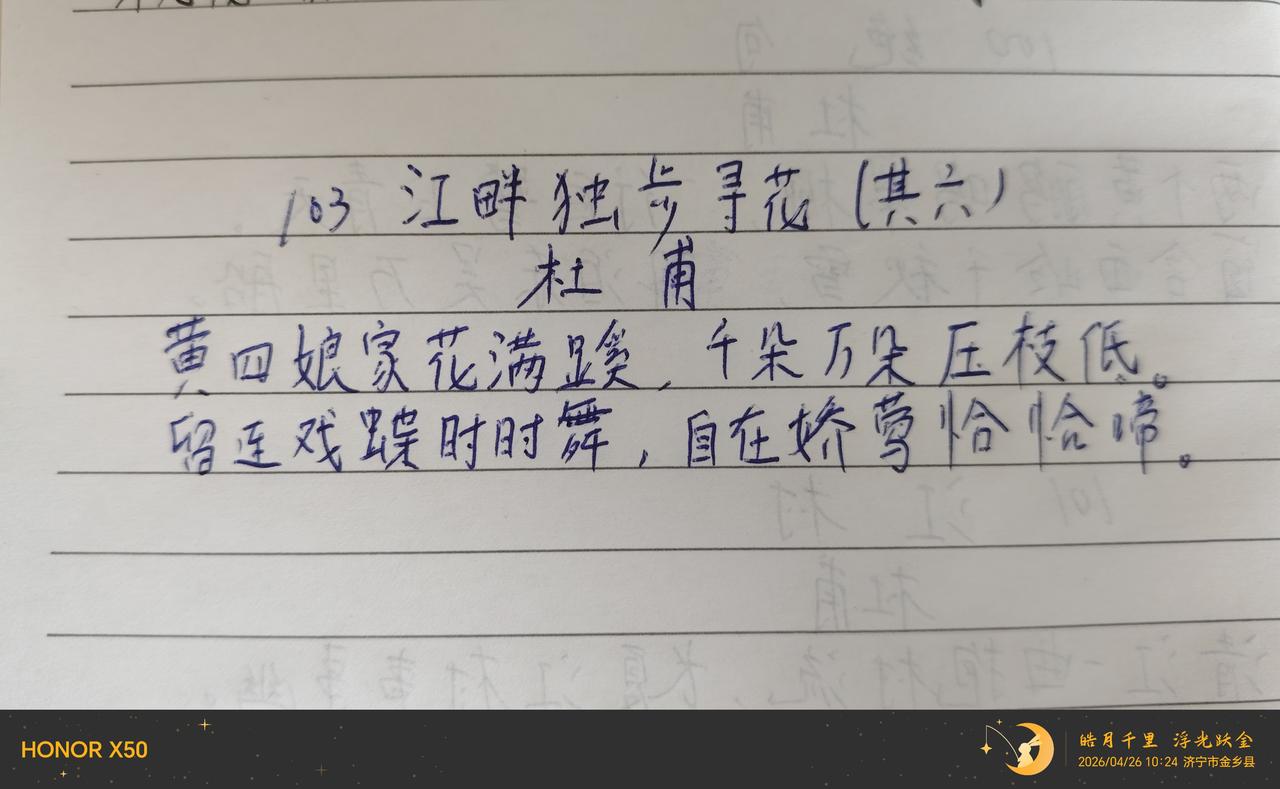 103 江畔独步寻花(其六)
杜甫
黄四娘家花满蹊,千朵万朵压枝低。
留连戏蝶时时舞,自在娇莺恰恰啼。
HONOR X50
皓月千里 浮光跃金
2026/04/26 10:24 济宁市金乡县